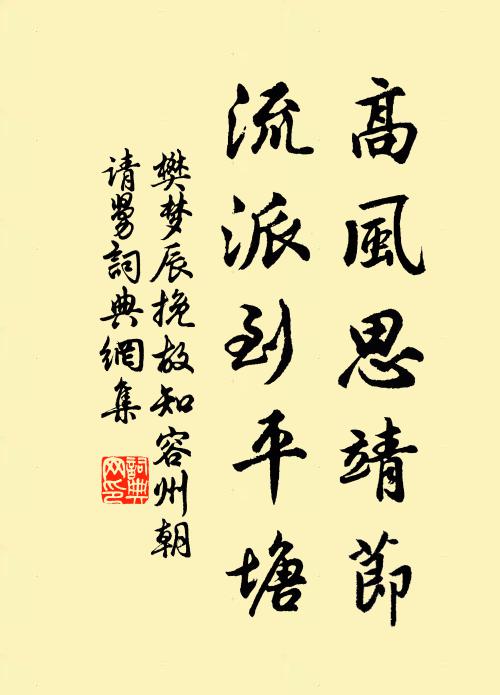 高風思靖節
流派到平塘
樊梦辰挽故知容州朝
请詞典網集
詞典
网印